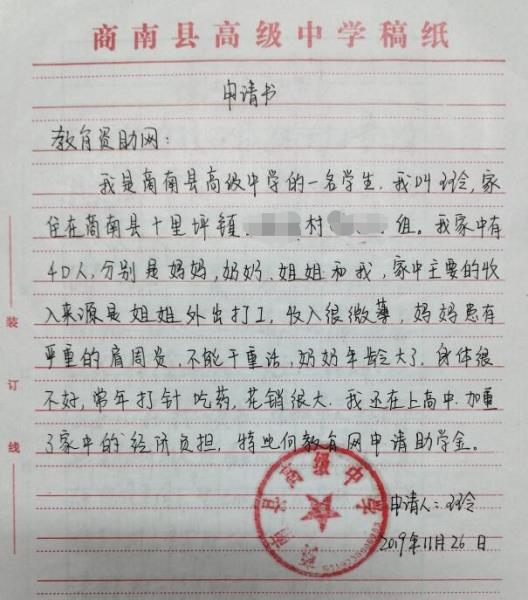 商南县高级中学稿纸
申请书
教育资助网：
我是商南县高级中学的一名学生，我叫玲，家
住在商南县十里坪镇 村 组。我家中有
4口人，分别是妈妈，奶奶、姐姐和我，家中主要的收
入来源是姐姐外出打工，收入很微薄，妈妈患有
严重的肩周炎，不能干重活，奶奶年龄大了，身体很
不好，常年打针吃药，花销很大。我还在上高中.加重
了家中的经济负担，特此向教育网申请助学金。
申请人：玲
2019年11月26日
装
订
线
商南县高级中学